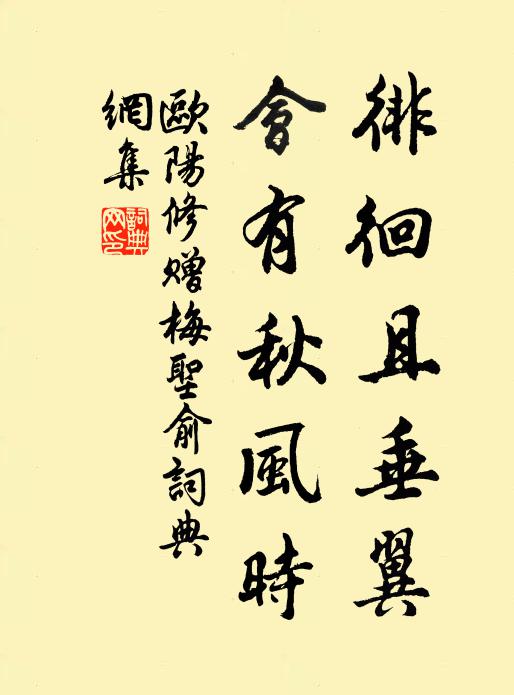 徘徊且垂翼
會有秋風時
歐陽修贈梅聖俞詞典
網集
詞典
网印